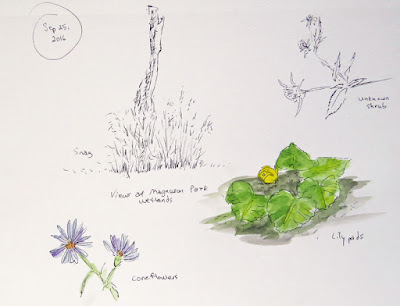 Sep. 25,
2016
unknown
shrub
Snag
View at Magnuson Park
wetlands
Lily pads
Coneflowers